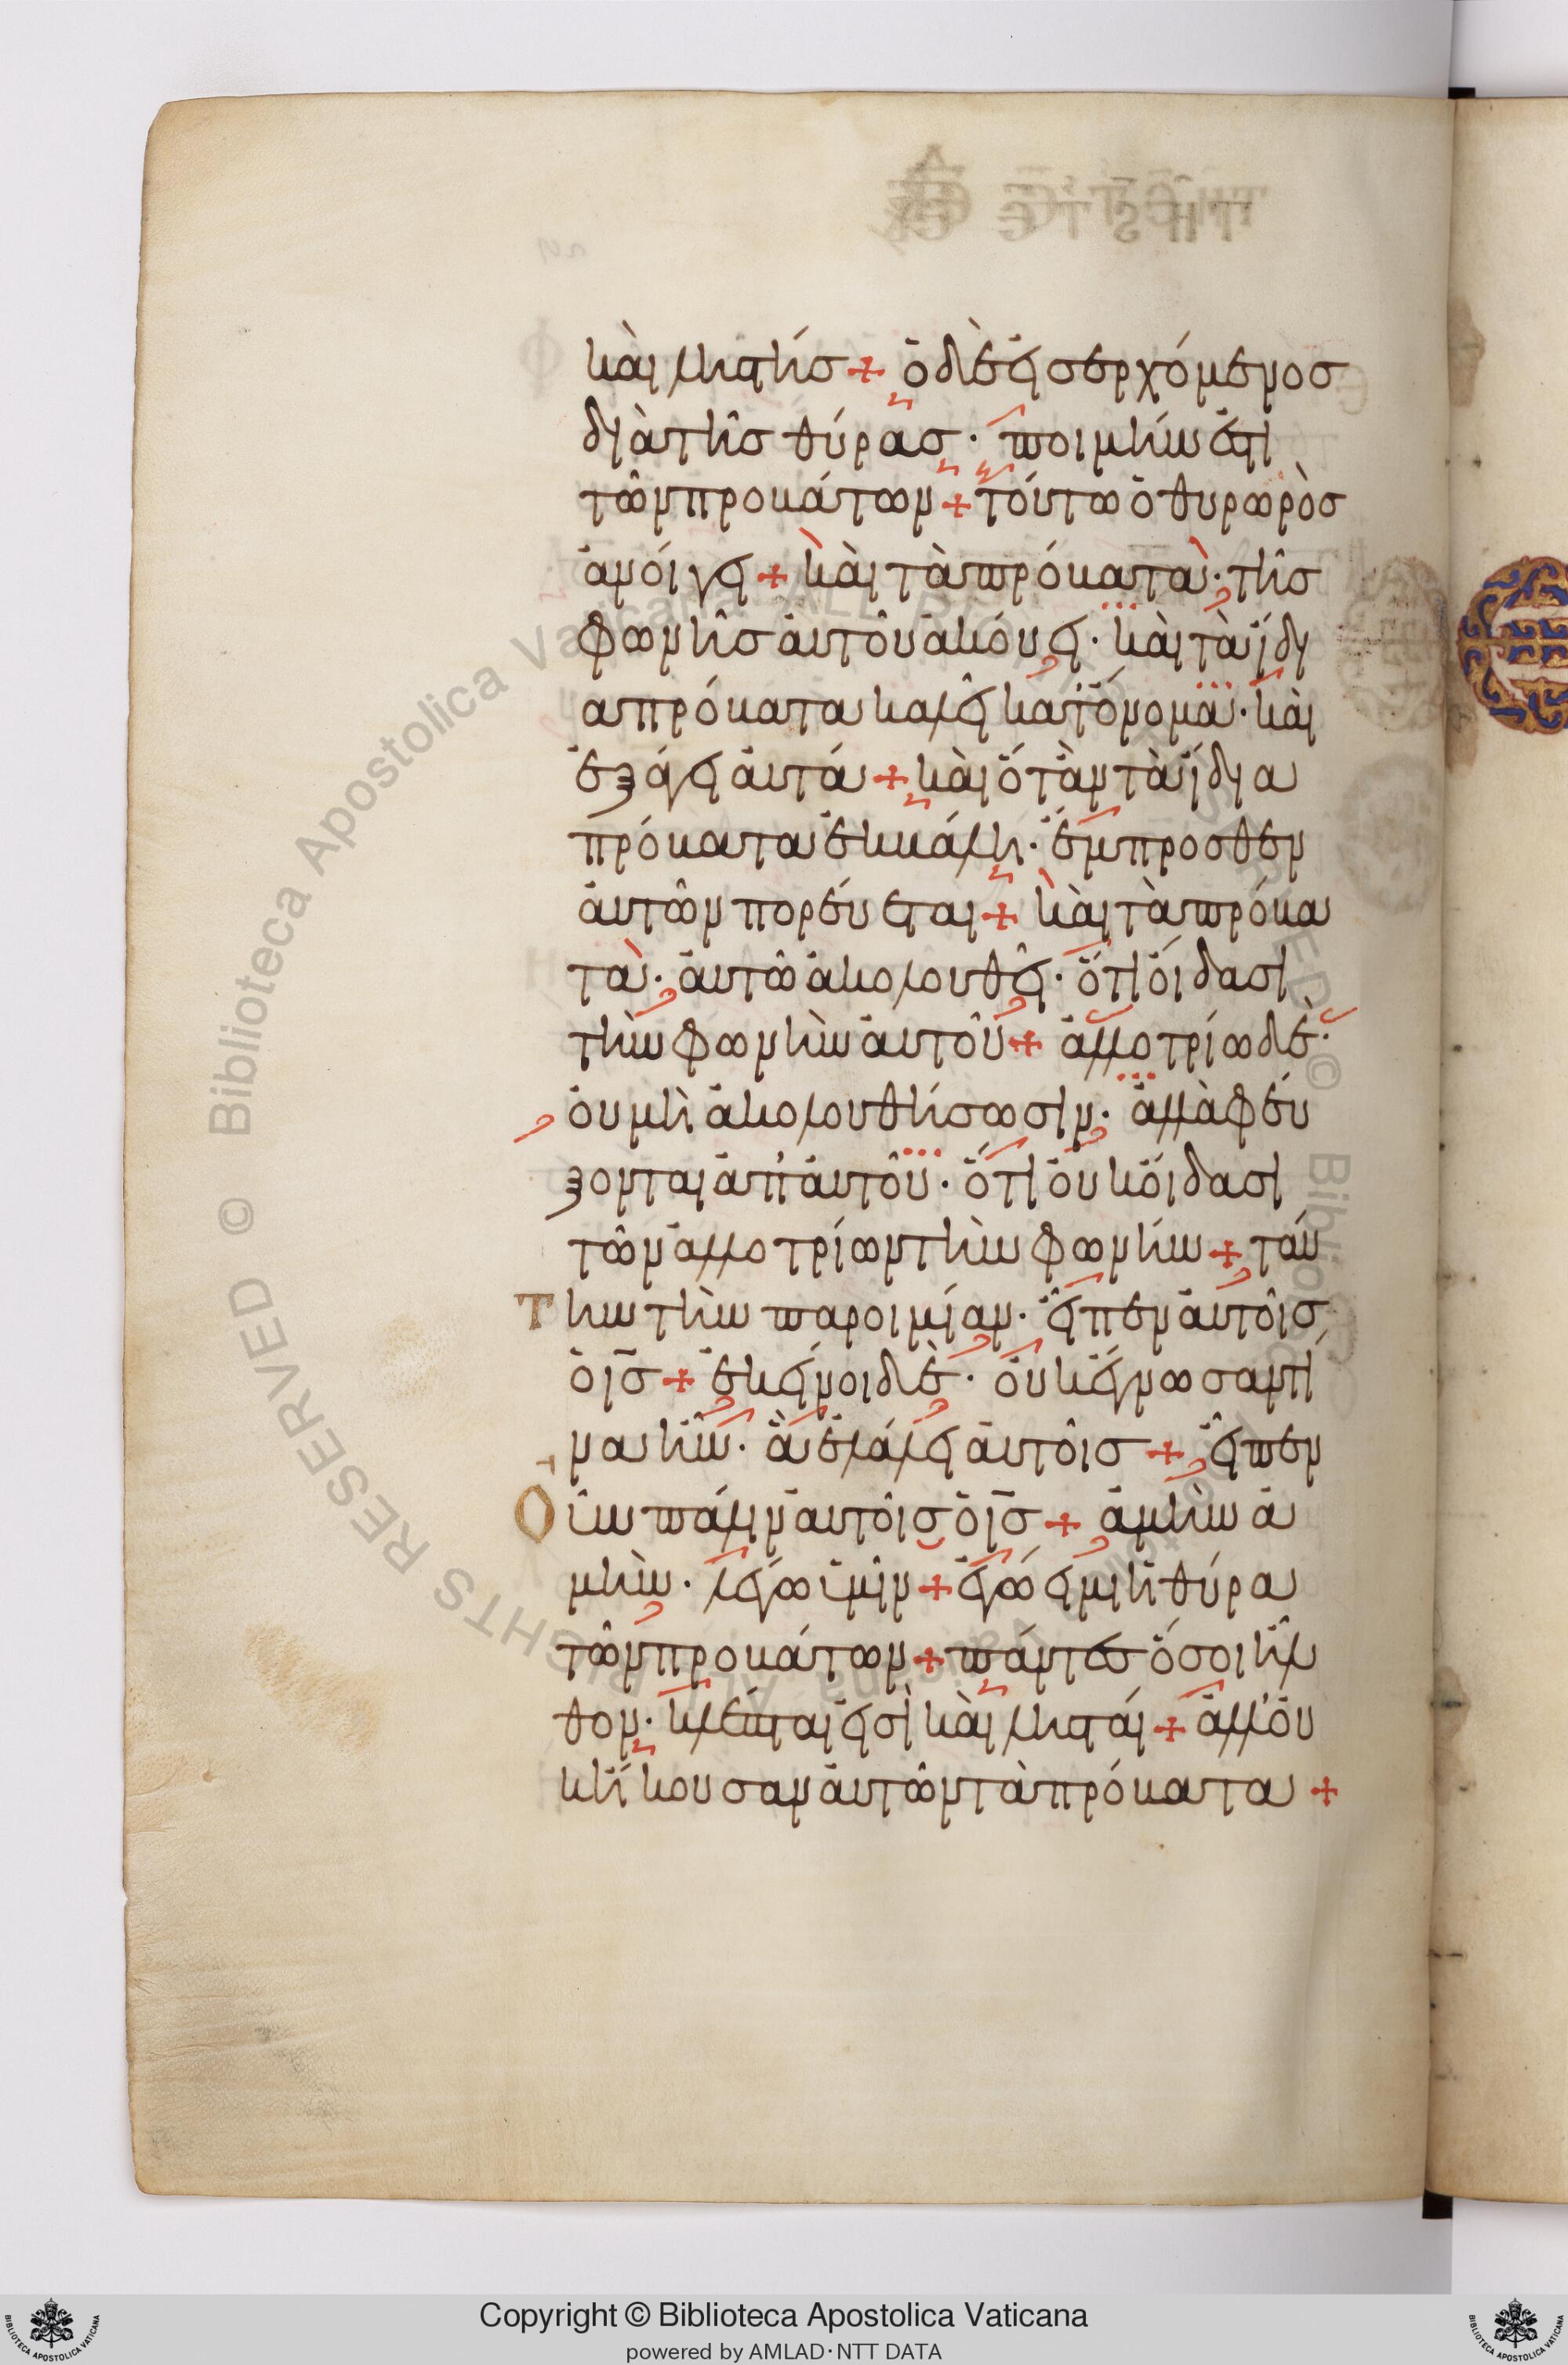 καὶ ληστής + ὁ δὲ εἰσερχόμενος
διὰ τῆς θύρας · ποιμήν ἐστι
τῶν προβάτων + τούτω ὁ θυρωρὸς
ἀνοίγει + καὶ τὰ πρόβατα · τῆς
φωνῆς αὐτοῦ ἀκούει · καὶ τὰ ἴδι
α πρόβατα καλεῖ κατ' ὄνομα · καὶ
ἐξάγει αὐτά + καὶ ὅταν τὰ ἴδια
πρόβατα ἐκβάλη · ἔμπροσθεν
αὐτῶν πορεύεται + καὶ τὰ πρόβα
τα · αὐτῶ ἀκολουθεῖ · ὅτι οἴδασι
τὴν φωνὴν αὐτοῦ + ἀλλοτρίω δὲ ·
οὐ μὴ ἀκολουθήσωσιν · ἀλλὰ φεύ
ξονται ἀπ' αὐτοῦ · ὅτι οὐκ οἴδασι
τῶν ἀλλοτρίων τὴν φωνήν + ταύ
την τὴν παροιμίαν · εἶπεν αὐτοῖς
ὁ ις + ἐκεῖνοι δὲ · οὐκ ἔγνωσαν τί
να ἦν · ἃ ἐλάλει αὐτοῖς + εἶπεν
οὖν πάλιν αὐτοῖς ὁ ις + ἀμὴν ἀ
μὴν · λέγω ὑμῖν + ἐγώ εἰμι ἡ θύρα
τῶν προβάτων + πάντες ὅσοι ἦλ
θον · κλέπται εἰσὶ καὶ λησταί + ἀλλ' οὐ
κ ἤκουσαν αὐτῶν τὰ πρόβατα +
Copyright © Biblioteca Apostolica Vaticana
powered by AMLAD·NTT DATA